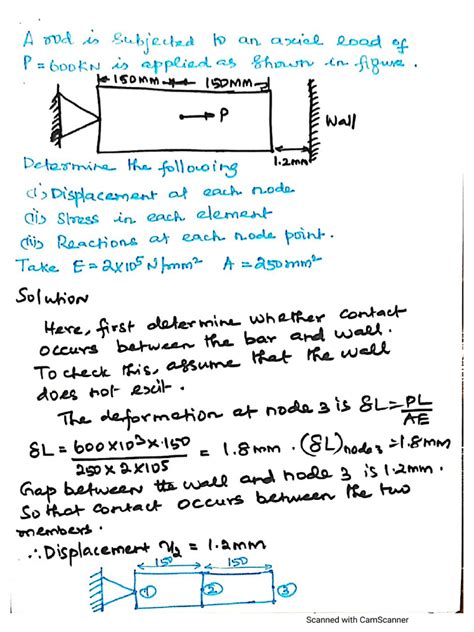 A rod is subjected to an axial load of
P = 600KN is applied as shown in figure.
150MM 150MM
P
Wall
1.2mm
Determine the following
(i) Displacement at each node
(ii) Stress in each element
(iii) Reactions at each node point.
Take E = 2x10⁵ N/mm² A = 250mm²
Solution
Here, first determine whether contact
occurs between the bar and wall.
To check this, assume that the wall
does not exit.
The deformation at node 3 is δL = PL/AE
δL = 600x10³x150 / 250x2x105 = 1.8mm. (δL)node3 = 1.8mm
Gap between the wall and node 3 is 1.2mm.
So that contact occurs between the two
members.
∴ Displacement u₂ = 1.2mm
150 150
1 2 3
Scanned with CamScanner